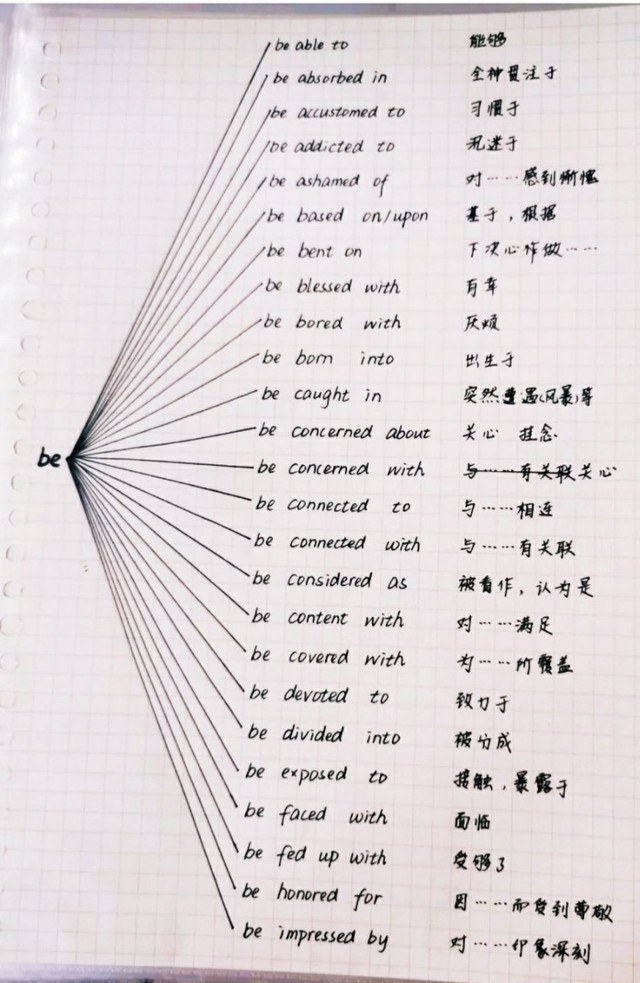 be
be able to 能够
be absorbed in 全神贯注于
be accustomed to 习惯于
be addicted to 沉迷于
be ashamed of 对……感到惭愧
be based on/upon 基于，根据
be bent on 下决心作做……
be blessed with 有幸
be bored with 厌烦
be born into 出生于
be caught in 突然遭遇(风暴)等
be concerned about 关心 挂念
be concerned with 与……有关联关心
be connected to 与……相连
be connected with 与……有关联
be considered as 被看作，认为是
be content with 对……满足
be covered with 为……所覆盖
be devoted to 致力于
be divided into 被分成
be exposed to 接触，暴露于
be faced with 面临
be fed up with 受够了
be honored for 因……而受到尊敬
be impressed by 对……印象深刻